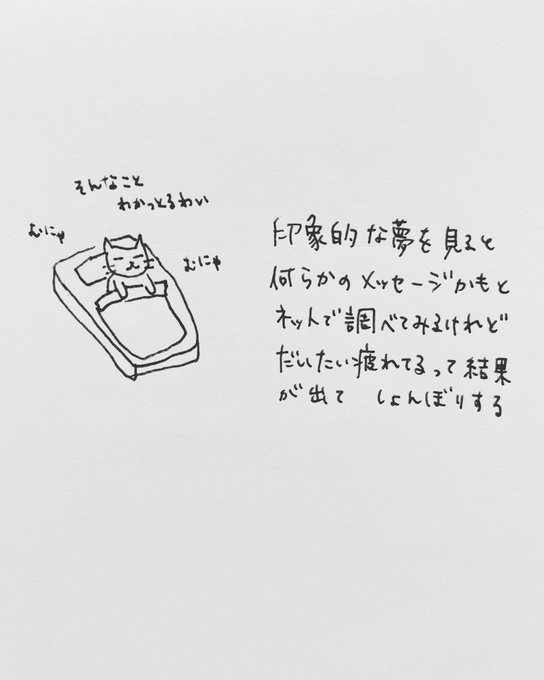 そんなこと
わかっとるわい
むにゃ
むにゃ
印象的な夢を見ると
何らかのメッセージかもと
ネットで調べてみるけれど
だいたい疲れてるって結果
が出て しょんぼりする